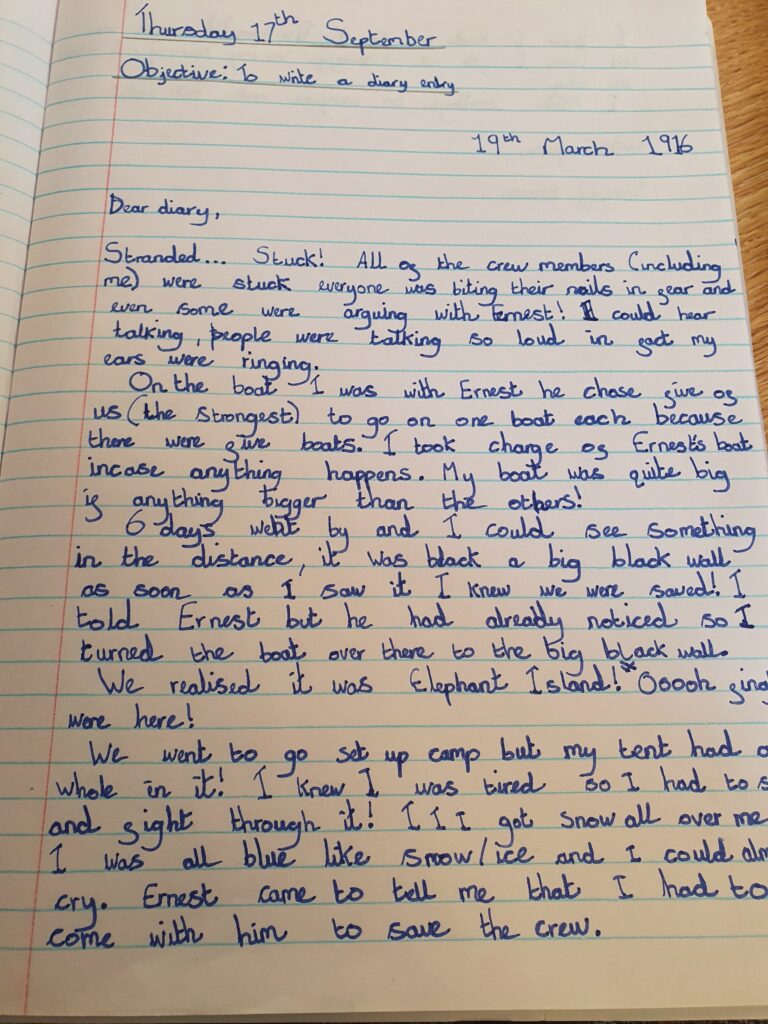 Thursday 17th September
Objective: To write a diary entry
19th March 1916
Dear diary,
Stranded... Stuck! All of the crew members (including
me) were stuck everyone was biting their nails in fear and
even some were arguing with Ernest! I could hear
talking, people were talking so loud in fact my
ears were ringing.
On the boat I was with Ernest he chose five of
us (the strongest) to go on one boat each because
there were five boats. I took charge of Ernest's boat
incase anything happens. My boat was quite big
if anything bigger than the others!
6 days went by and I could see something
in the distance, it was black a big black wall
as soon as I saw it I knew we were saved! I
told Ernest but he had already noticed so I
turned the boat over there to the big black wall.
We realised it was Elephant Island! "Ooooh
were here!
We went to go set up camp but my tent had
whole in it! I knew I was tired so I had to
and fight through it! I I I got snow all over me
I was all blue like snow/ice and I could
cry. Ernest came to tell me that I had to
come with him to save the crew.